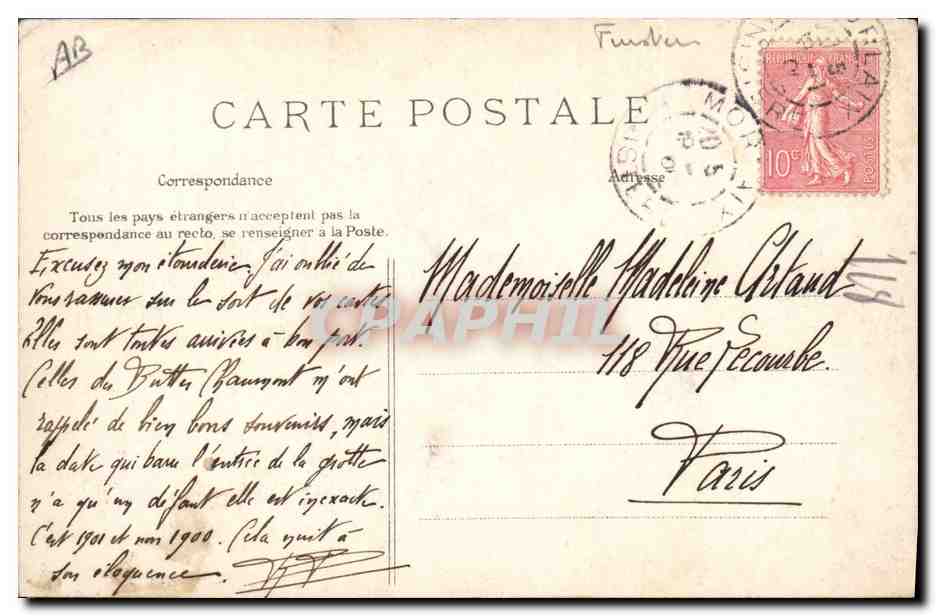 AB
Finistere
CARTE POSTALE
Correspondance
Adresse
Tous les pays étrangers n'acceptent pas la
correspondance au recto, se renseigner à la Poste.
Excusez mon étourderie. J'ai oublié de
vous rassurer sur le sort de vos cartes
Elles sont toutes arrivées à bon port.
Celles des Buttes Chaumont m'ont
rappelé de bien bons souvenirs, mais
la date qui barre l'entrée de la grotte
n'a qu'un défaut elle est inexacte.
C'est 1901 et non 1900. Cela nuit à
son éloquence.
Mademoiselle Madeleine Artaud
118 Rue Lecourbe.
Paris
REPUBLIQUE FRANÇAISE
10c
POSTES
MORLAIX
FINISTERE
MORLAIX
FINISTERE
CPAPHIL